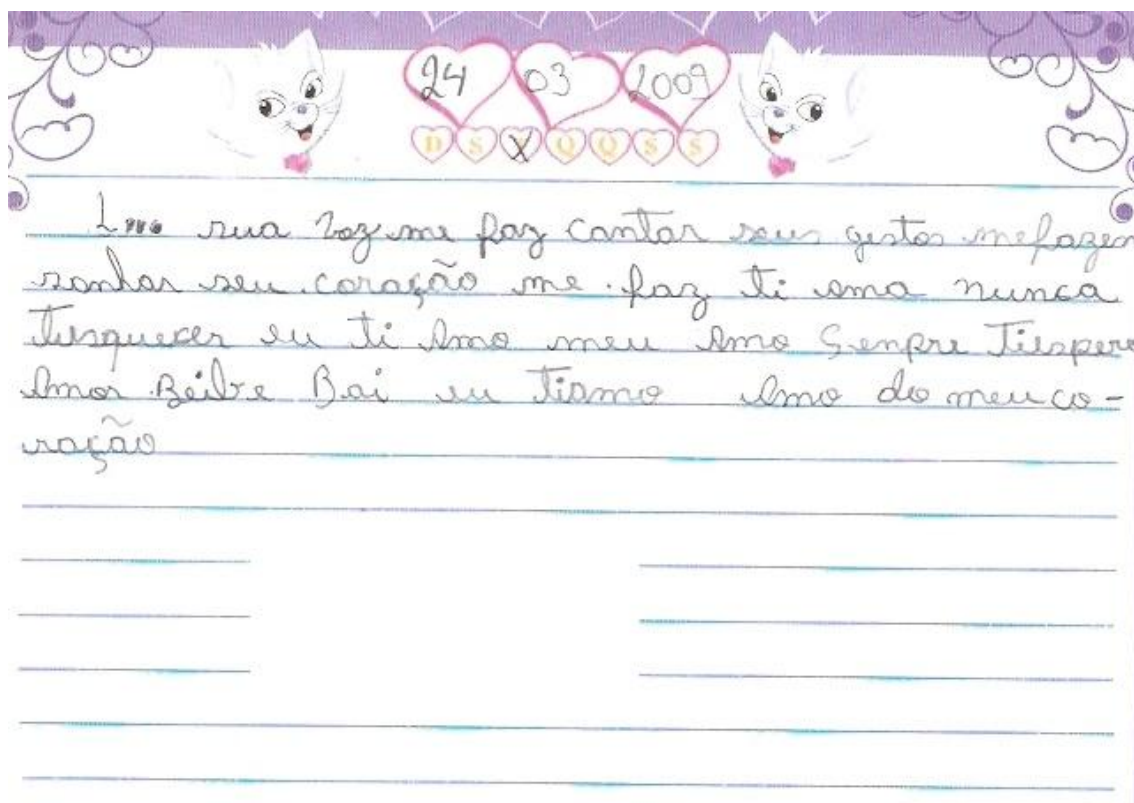 24 03 2009
D S X Q Q S S
sua voz me faz cantar seus gestos mefazem
sonhar seu coração me faz ti ama nunca
tiesquecer eu ti Amo meu Amo Senpre Tiespere
Amor Beibe Bai eu tiamo Amo do meu co-
ração